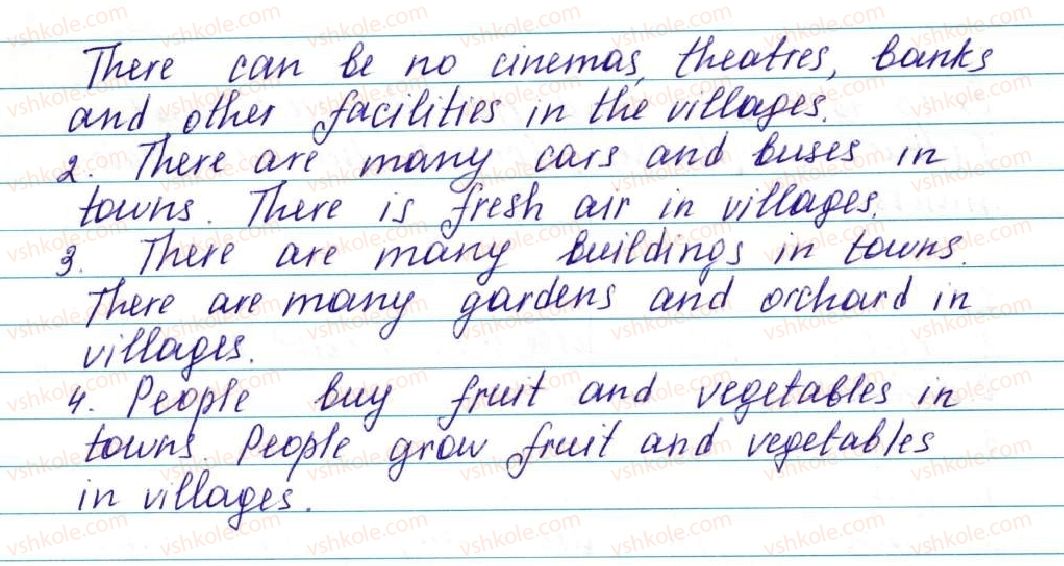 There can be no cinemas, theatres, banks
and other facilities in the villages.
2. There are many cars and buses in
towns. There is fresh air in villages.
3. There are many buildings in towns.
There are many gardens and orchard in
villages.
4. People buy fruit and vegetables in
towns. People grow fruit and vegetables
in villages.